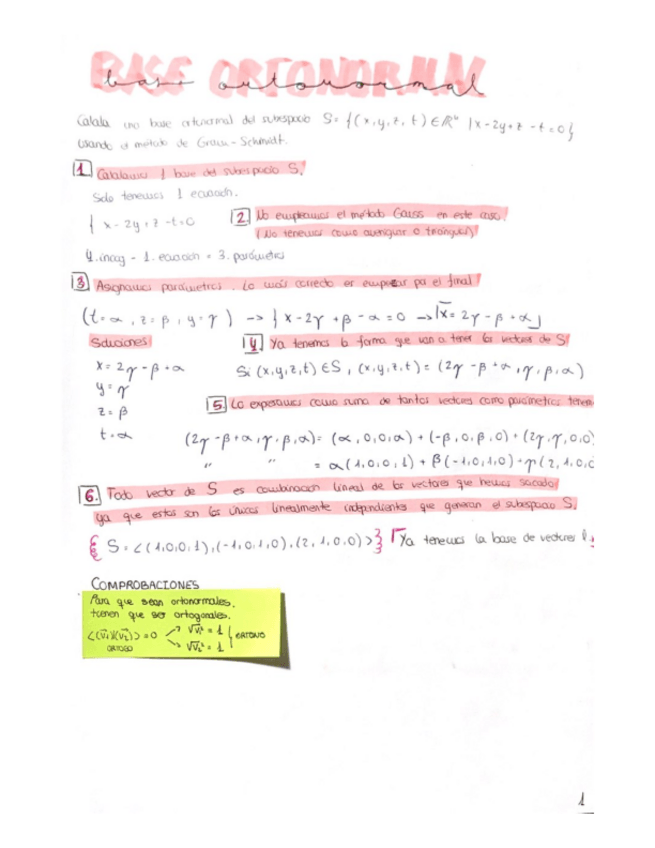 BASE ORTONORMAL
base ortonormal
Calcula una base ortonormal del subespacio S= {(x,y,z,t) ∈ ℝ⁴ | x-2y+z-t=0}
usando el método de Gram-Schmidt.
1 Calculamos 1 base del subespacio S.
Solo tenemos 1 ecuación.
{ x-2y+z-t=0
2 No empleamos el método Gauss en este caso.
(No tenemos como averiguar o triangular)
4.incog - 1.ecuación = 3.parámetros
3 Asignamos parámetros. Lo más correcto es empezar por el final
(t=α, z=β, y=γ) -> { x-2γ+β-α=0 -> x=2γ-β+α
Soluciones
x=2γ-β+α
y=γ
z=β
t=α
4 Ya tenemos la forma que van a tener los vectores de S
Si (x,y,z,t) ∈ S, (x,y,z,t) = (2γ-β+α,γ,β,α)
5. Lo expresamos como suma de tantos vectores como parámetros
(2γ-β+α,γ,β,α)= (α,0,0,α) + (-β,0,β,0) + (2γ,γ,0,0)
" " = α(1,0,0,1) + β(-1,0,1,0) + γ(2,1,0,0
6. Todo vector de S es combinación lineal de los vectores que hemos sacado
ya que estos son los únicos linealmente independientes que generan el subespacio S.
{ S = <(1,0,0,1),(-1,0,1,0),(2,1,0,0)> } Ya tenemos la base de vectores
COMPROBACIONES
Para que sean ortonormales.
tienen que ser ortogonales.
<(v₁)(v₂)> = 0 -> √v₁² = 1
-> √v₂² = 1
ORTOGO
ORTONO
1